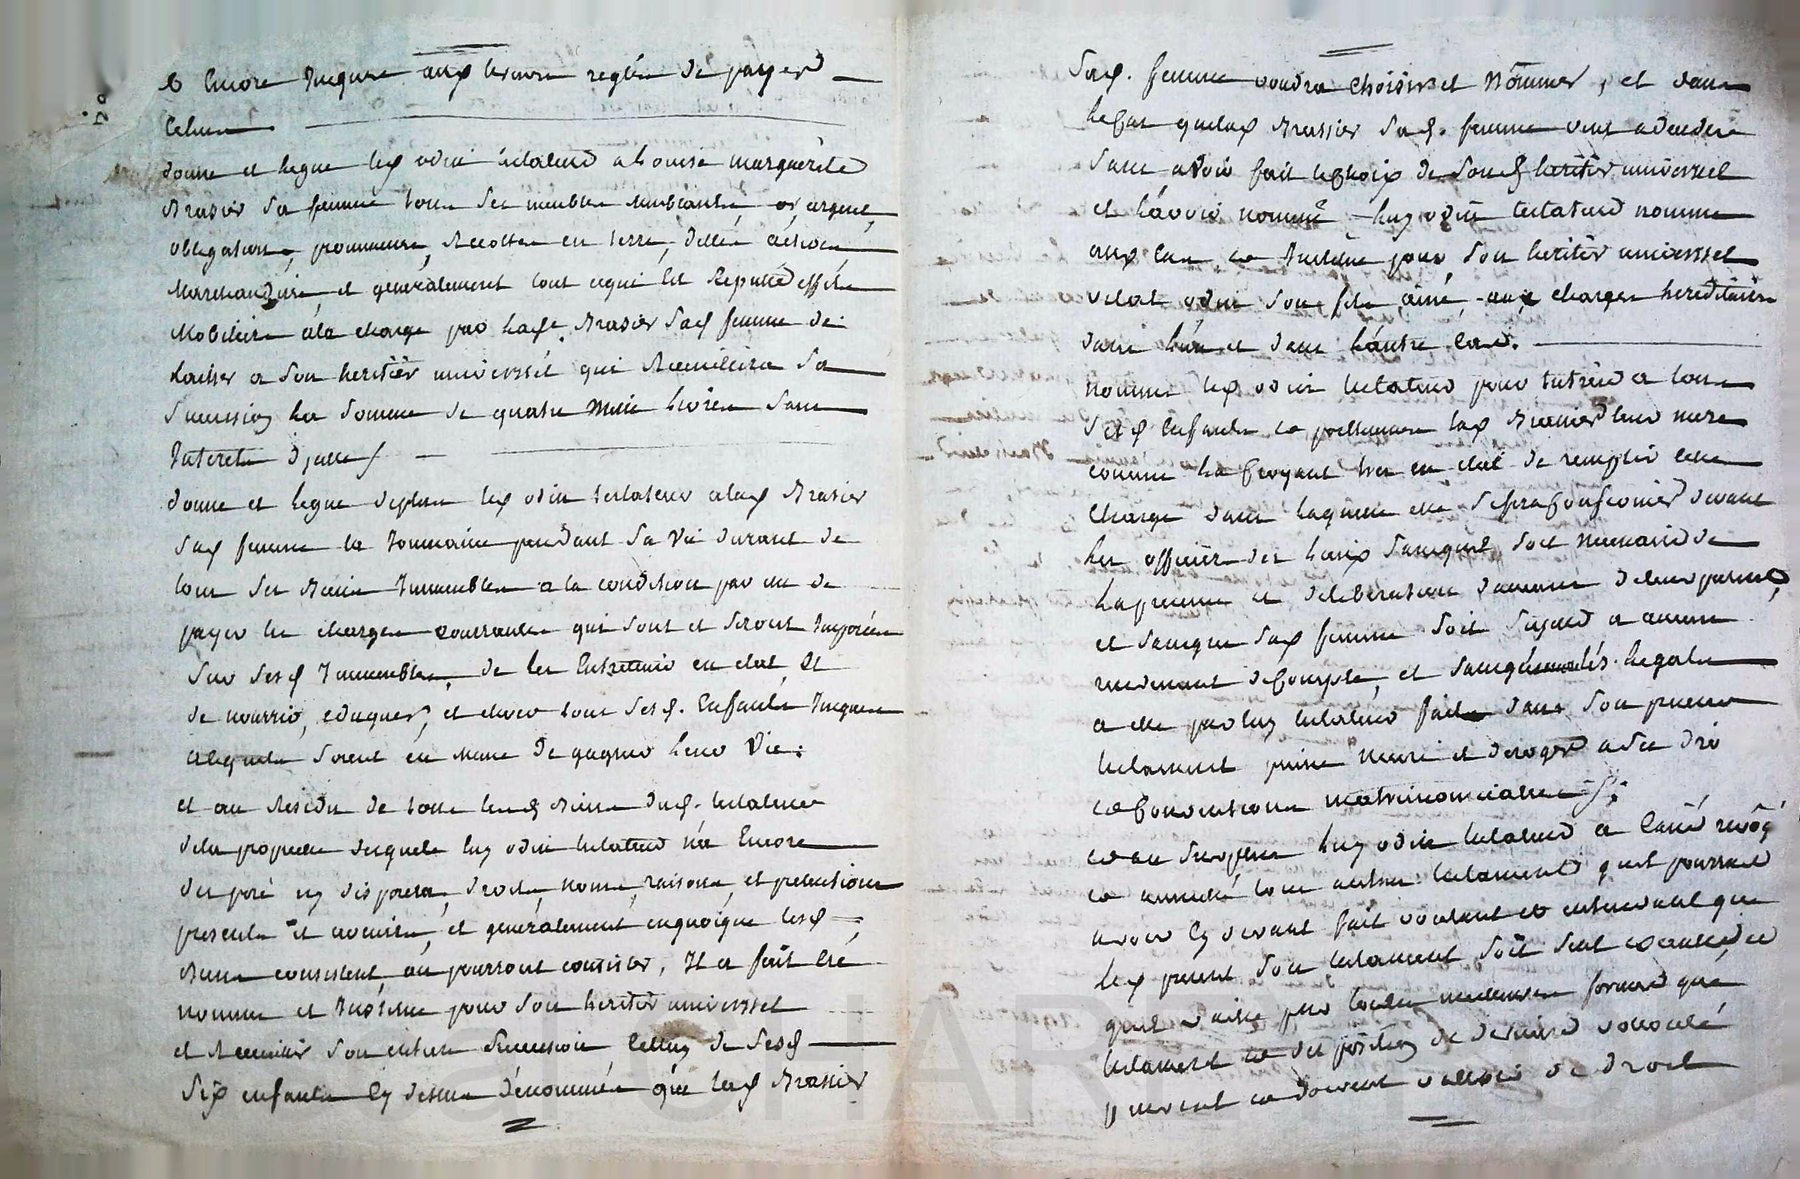 Encore jusques aux termes reglés de payer
Celuy
donne et legue led odin testateur a Louise marguerite
Brasier sa femme tous ses meubles meublants, or, argent,
obligations, promesses, Recoltes en terre, dettes actives
Marchandises et generalement tout cequi est Reputé effets
Mobiliers ala charge par lad. Brasier sad femme de
lacher a son heritier universel qui Recueillira sa
succession la somme de quatre mille livres sans
Interets d'jcelle
donne et legue deplus led odin testateur alad Brasier
sad femme la Jouissance pendant sa vie durant de
tous ses Biens Immeubles a la condition par elle de
payer les charges courrantes qui sont et seront Imposées
sur sesd Immeubles, de les Entretenir en etat, Et
de nourrir, eduquer, et elever tous sesd. Enfants Jusques
acequils soient en etat de gagner leur vie:
et au Residu de tous lesd Biens dud. testateur
dela propriété desquels luy odin testateur n'a Encore
disposé ny disposera, droits, noms, raisons, et pretentions
presents et avenirs, et generalement enquoique lesd
Biens consistent, ou pourront consister, Il a fait Créé
nommé et Institué pour son heritier universel
et Recueillir son entiere succession, Celluy de sesd
six enfants Cy dessus denommés que lad Brasier
Sad. femme voudra choisir et Nommer, et dans
le Cas quelad Brasier sad. femme vint a deceder
sans avoir fait le Choix de sond heritier universel
et l'avoir nommé luy odin testateur nomme
aud cas et Institue pour son heritier universel
odin son fils ainé aux charges hereditaires
dans l'un et dans l'autre Cas.
nomme led odin testateur pour tutrice a tous
sesd Enfants et personnes lad Brasier leur mere
comme la Croyant tres en etat de remplir cette
Charge dans laquelle elle se fera Confirmer devant
les officiers des lieux sans quil soit necessaire de
la presence et deliberation d'aucuns de leurs parents,
et sans que sad femme soit sujette a aucun
rendement de Compte, et sans que les legats
a elle par luy testateur faits dans son present
testament puisse nuire et deroger a ses droits
et Conventions matrimoniales
et au surplus luy odin testateur a Cassé revoqué
et annullé tous autres testaments quil pourrait
avoir Cy devant fait voulant et entendant que
le present son testament soit seul executé et
quil vaille par toutes meilleures formes que
testament et disposition de derniere volonté
peuvent et doivent valloir de droit